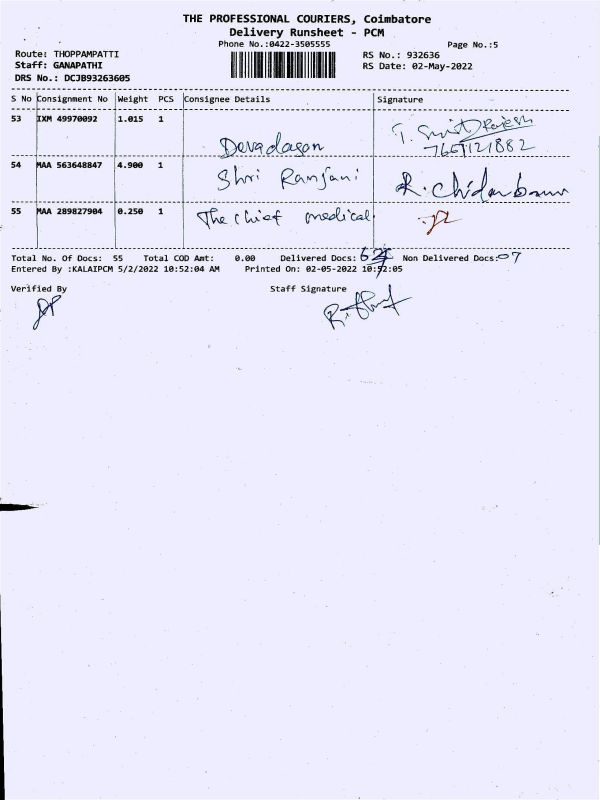 THE PROFESSIONAL COURIERS, Coimbatore
Delivery Runsheet - PCM
Phone No.:0422-3505555 Page No.:5
Route: THOPPAMPATTI RS No.: 932636
Staff: GANAPATHI RS Date: 02-May-2022
DRS No.: DCJB93263605
S No Consignment No Weight PCS Consignee Details Signature
53 IXM 49970092 1.015 1
Devadasan
54 MAA 563648847 4.900 1
Shri Ranjani R. Chidambaram
55 MAA 289827904 0.250 1 The chief medical.
Total No. Of Docs: 55 Total COD Amt: 0.00 Delivered Docs: Non Delivered Docs:07
Entered By :KALAIPCM 5/2/2022 10:52:04 AM Printed On: 02-05-2022 10:52:05
Verified By Staff Signature